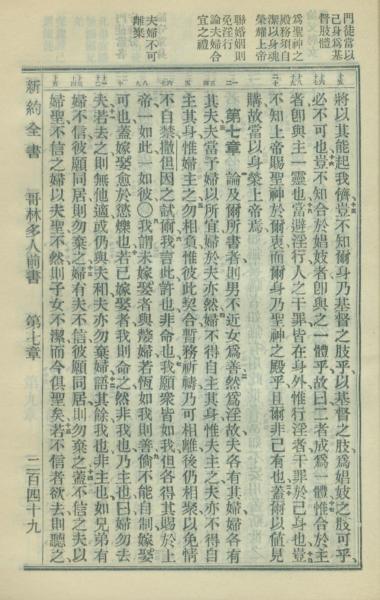 門徒當以
己身為基
督肢體
為聖神之
殿務須自
潔以身魂
榮耀上帝
聯婚姻則
免淫行
論夫婦合
宜之禮
夫婦不可
離棄
將以其能起我儕豈不知爾身乃基督之肢乎、以基督之肢為娼妓之肢可乎、
必不可也豈不知合於娼妓者卽與之一體乎故曰二者成為一體惟合於主
者卽與主一靈也當避淫行人之干罪皆在身外惟行淫者干罪於己身也豈
不知上帝賜聖神於爾衷而爾身乃聖神之殿乎且爾非己有也蓋爾以値見
購故當以身榮上帝焉
第七章 論及爾所書者則男不近女為善然為淫故夫各有其婦婦各有
其夫夫當予婦以所宜婦於夫亦然婦不得自主其身惟夫主之夫亦不得自
主其身惟婦主之勿相負惟彼此契合暫務祈禱乃可相離後仍相聚以免情
不自禁撒但因之試爾我言此許也非命也我願衆皆如我但各得其賜於上
帝一如此一如彼○我謂未嫁娶者與嫠婦若恆如我則善倘不能自制嫁娶
可也蓋嫁娶愈於慾爍也若已嫁娶者我則命之然非我也乃主也曰婦勿去
夫若去之則無他適或仍與夫和夫亦勿棄婦語其餘我也非主也如兄弟有
婦不信彼願同居則勿棄之婦有夫不信彼願同居則勿棄之蓋不信之夫以
婦聖不信之婦以夫聖不然則子女不潔而今俱聖矣若不信者欲去則聽之
新約全書 哥林多人前書 第七章 二百四十九